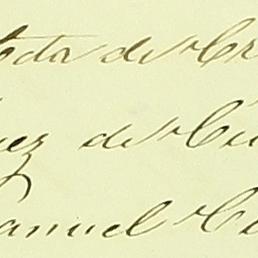 cta de Cr
ez de Ci
anuel C